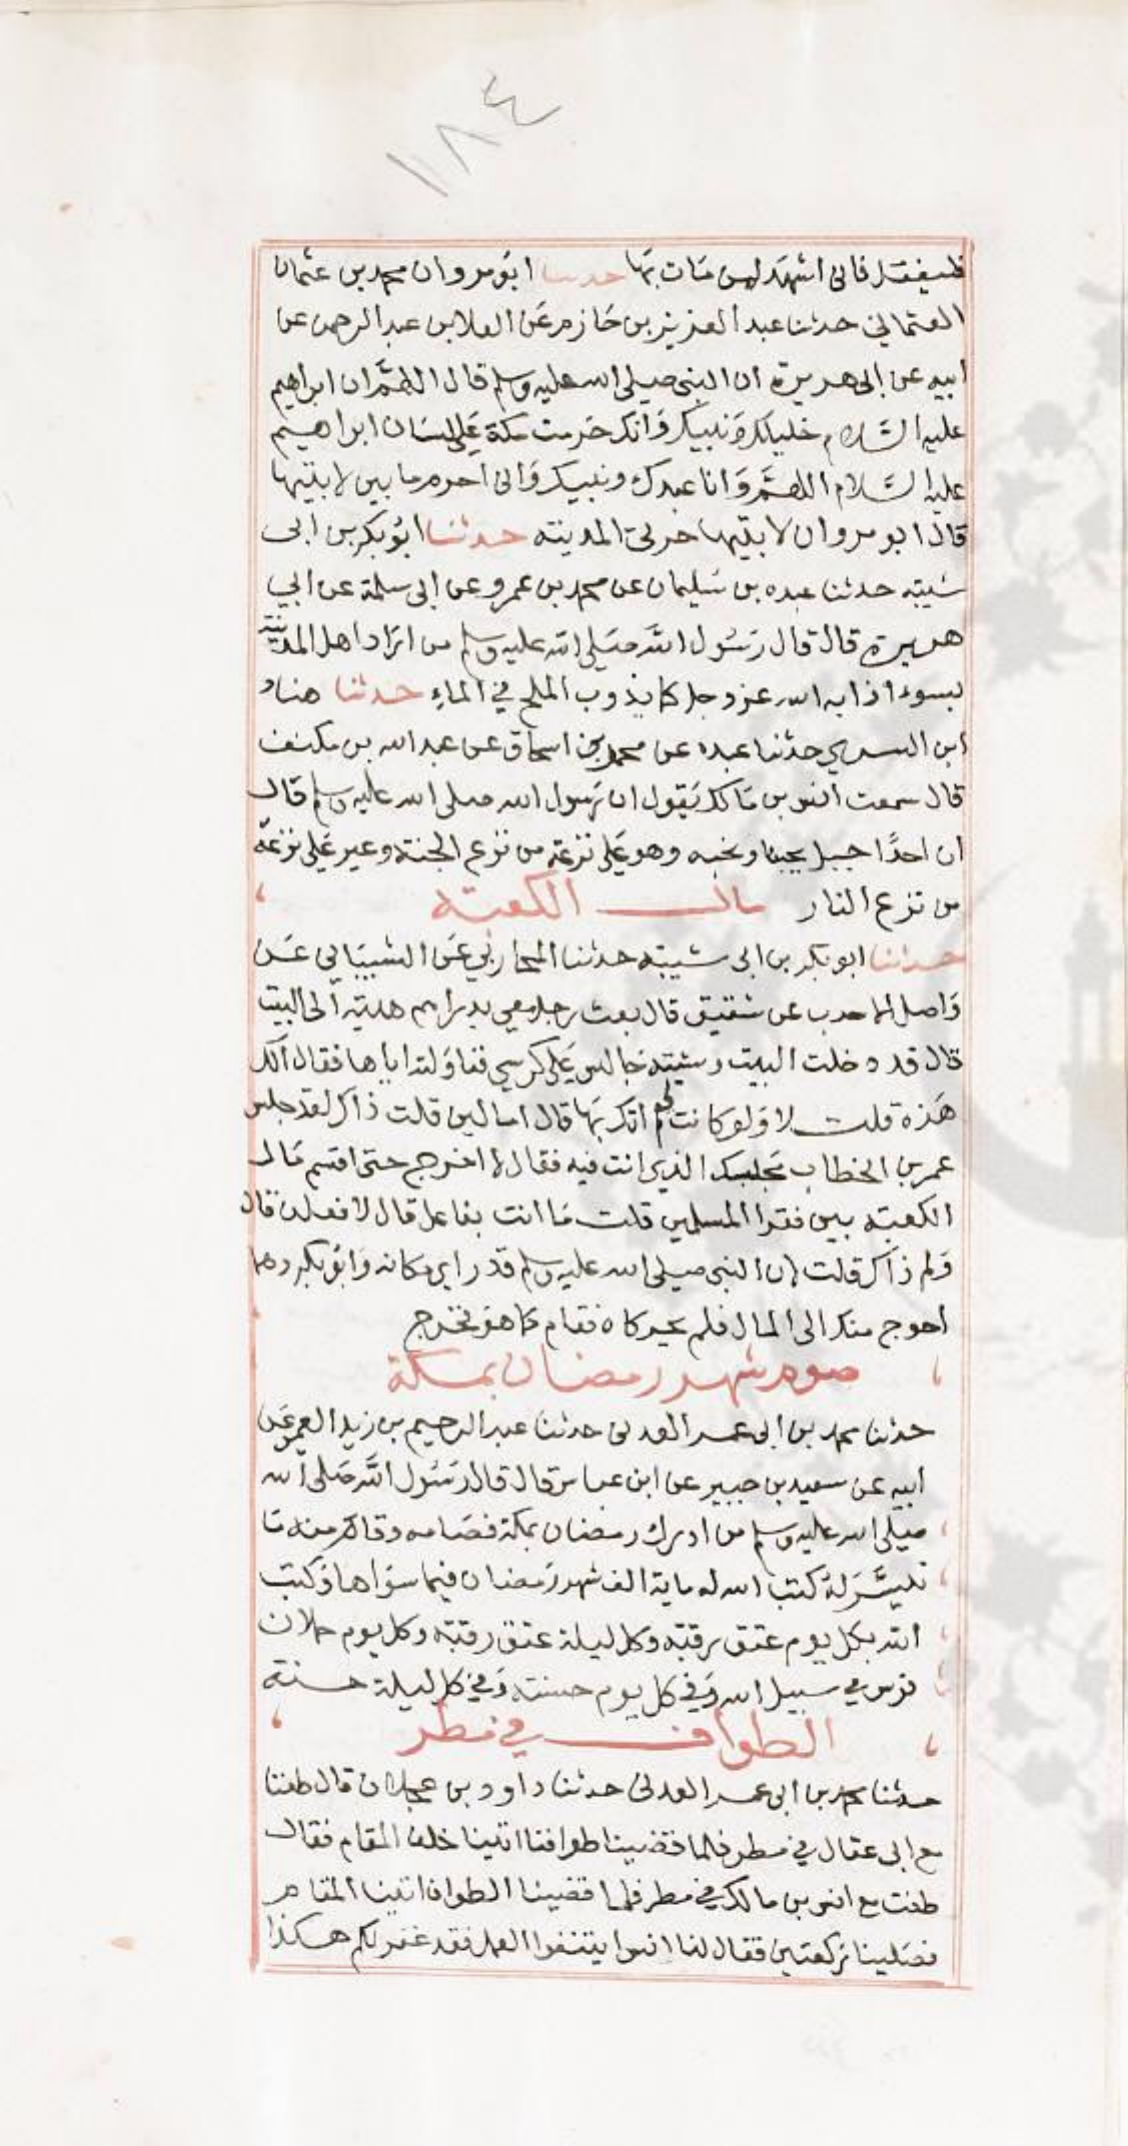 ١٨٤
فليفعل فانى اشهد لمن مات بها حدثنا ابو مروان محمد بن عثمان
العثماني حدثنا عبد العزيز بن حازم عن العلا بن عبد الرحمن عن
ابيه عن ابى هريرة ان النبى صلى الله عليه وسلم قال اللهم ان ابراهيم
عليه السلام خليلك ونبيك وانك حرمت مكة على لسان ابراهيم
عليه السلام اللهم وانا عبدك ونبيك وانى احرم ما بين لابتيها
قال ابو مروان لابتيها حرتى المدينه حدثنا ابو بكر بن ابى
شيبه حدثنا عبده بن سليمان عن محمد بن عمرو عن ابى سلمة عن ابي
هريرة قال قال رسول الله صلى الله عليه وسلم من اراد اهل المدينة
بسوء اذابه الله عز وجل كما يذوب الملح في الماء حدثنا هناد
ابن السري حدثنا عبده عن محمد بن اسحاق عن عبد الله بن مكنف
قال سمعت انس بن مالك يقول ان رسول الله صلى الله عليه وسلم قال
ان احدًا جبل يحبنا ونحبه وهو على نزعة من نزع الجنة وعير على نزعة
من نزع النار مال الكعبة
حدثنا ابو بكر بن ابى شيبه حدثنا المحاربي عن الشيباني عن
واصل الاحدب عن شقيق قال بعث رجل معي بدراهم هدية الى البيت
قال قد دخلت البيت وشيبه جالس على كرسي فناولته اياها فقال الك
هذه قلت لا ولو كانت لى لم اتك بها قال اما لين قلت ذاك لقد جلس
عمر بن الخطاب مجلسك الذي انت فيه فقال لا اخرج حتى اقسم مال
الكعبه بين فقرا المسلمين قلت ما انت بفاعل قال لافعلن قال
ولم ذاك قلت لان النبى صلى الله عليه وسلم قد راي مكانه وابو بكر وهما
احوج منك الى المال فلم يحركاه فقام كما هو فخرج
صوم شهر رمضان بمكة
حدثنا محمد بن ابى عمر العدنى حدثنا عبد الرحيم بن زيد العمي عن
ابيه عن سعيد بن جبير عن ابن عباس قال قال رسول الله صلى الله
صلى الله عليه وسلم من ادرك رمضان بمكة فصامه وقام منه ما
تيسر له كتب الله له ماية الف شهر رمضان فيما سواها وكتب
الله بكل يوم عتق رقبه وكل ليلة عتق رقبه وكل يوم حملان
فرس في سبيل الله وفي كل يوم حسنه وفي كل ليلة حسنة
الطواف في مطر
حدثنا محمد بن ابى عمر العدنى حدثنا داوود بن عجلان قال طفنا
مع ابى عقال في مطر فلما قضينا طوافنا اتينا خلف المقام فقال
طفت مع انس بن مالك في مطر فلما قضينا الطواف اتينا المقام
فصلينا ركعتين فقال لنا انس ايتنفوا العمل فقد غفر لكم هكذا